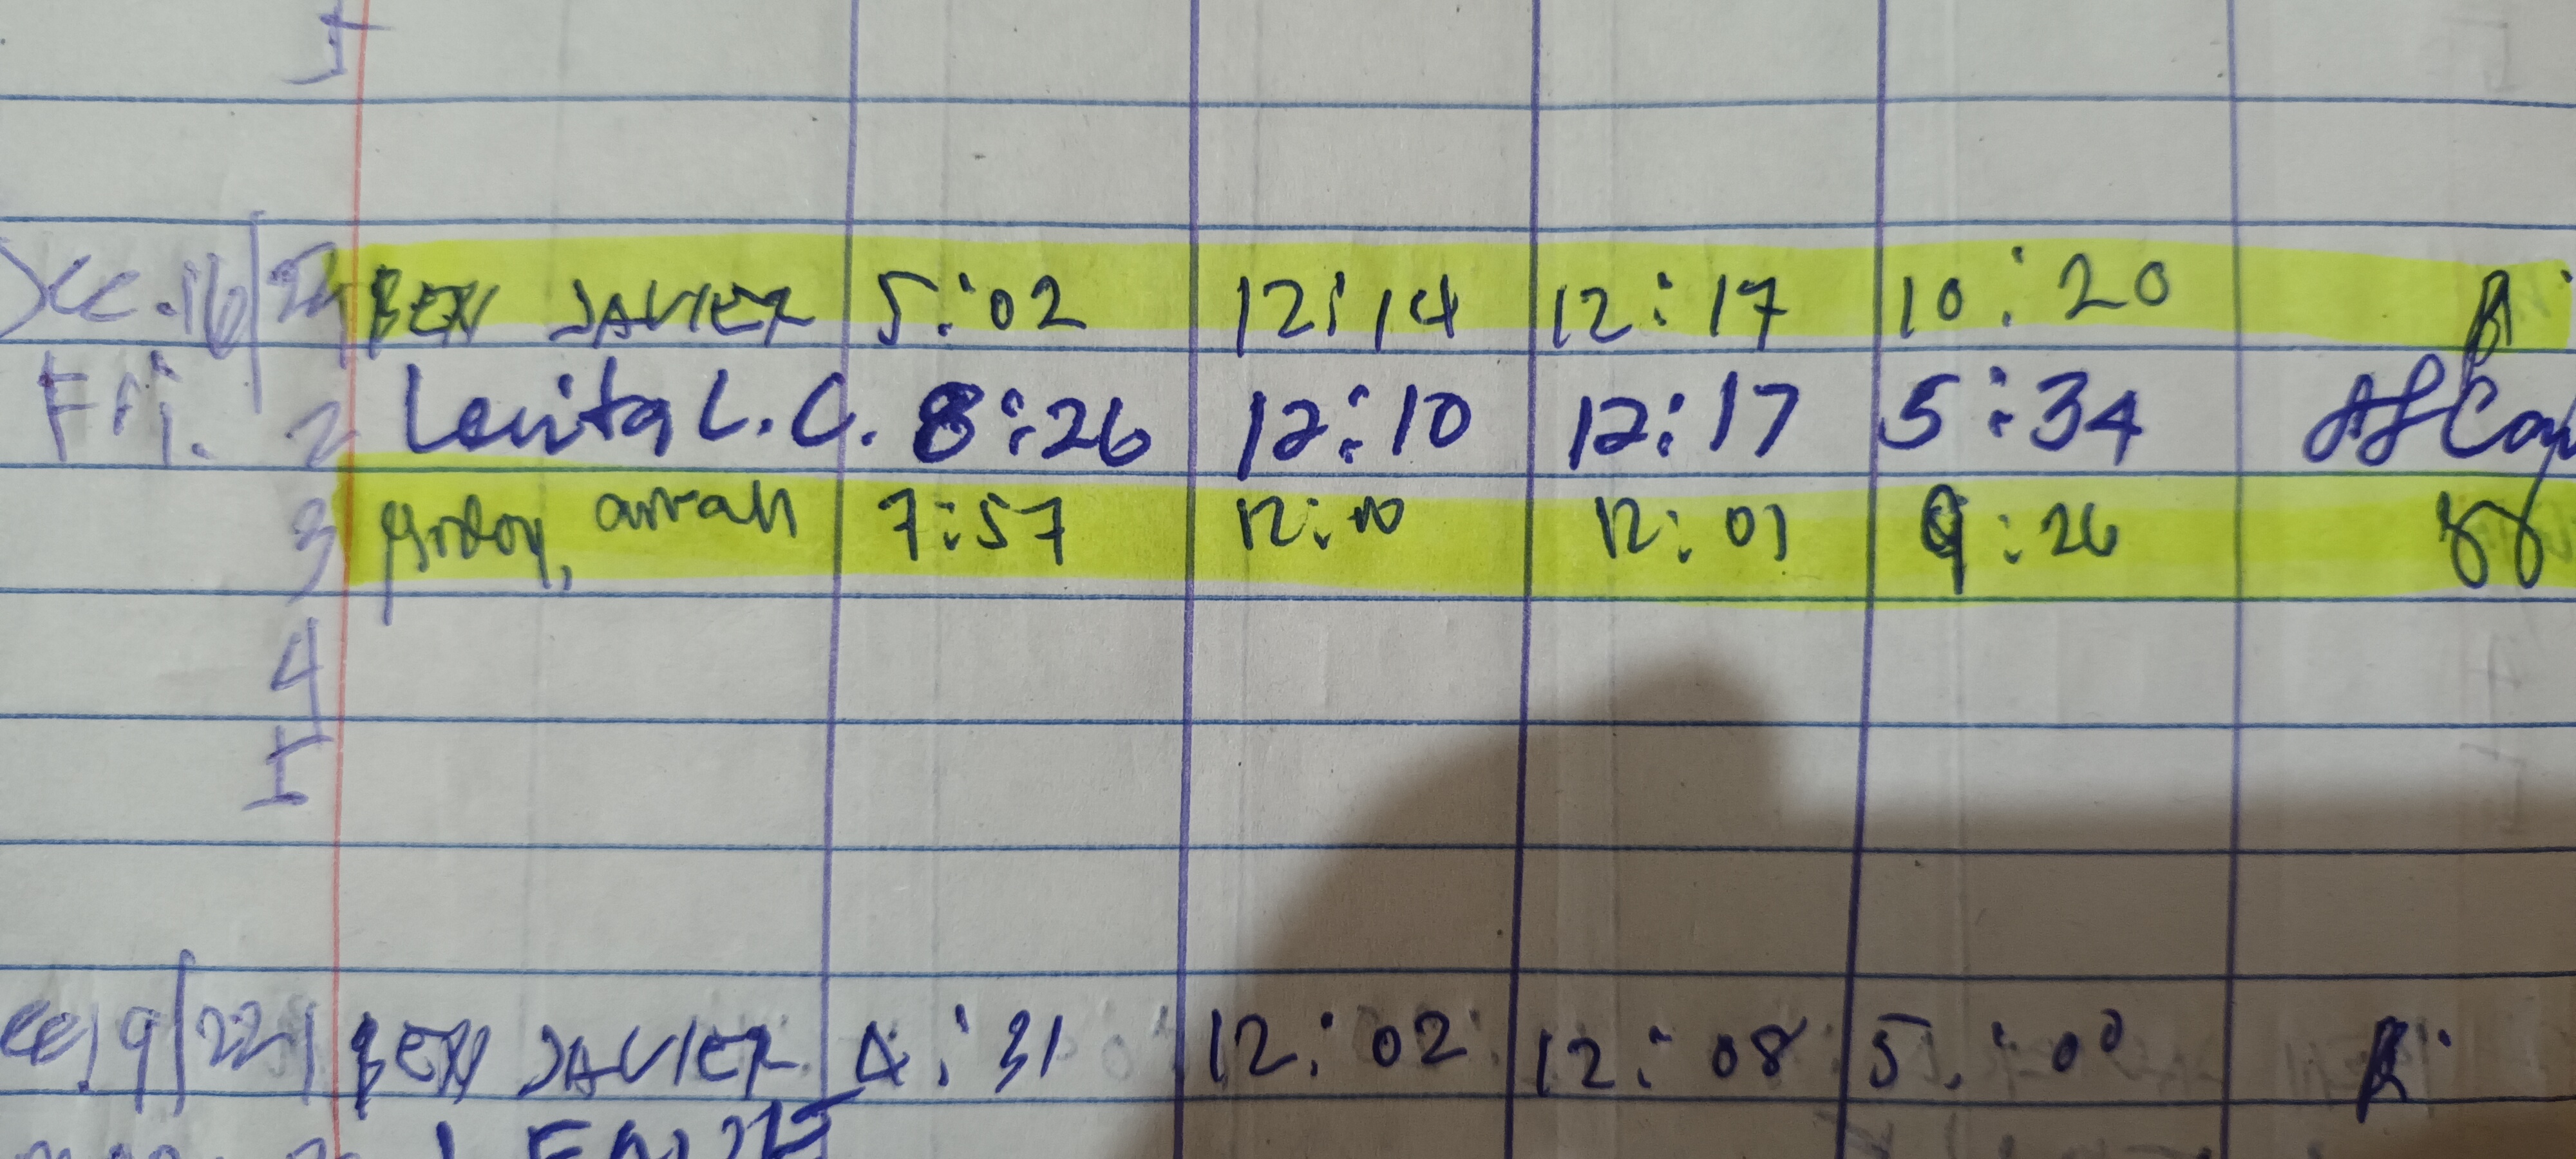 5
Dec. 16/22 1 BEN JAVIER 5:02 12:14 12:17 10:20
Fri. 2 Levita L.C. 8:26 12:10 12:17 5:34
3 arrah 7:57 12:00 12:01 9:26
4
5
19/22 1 BEN JAVIER 4:31 12:02 12:08 5:00